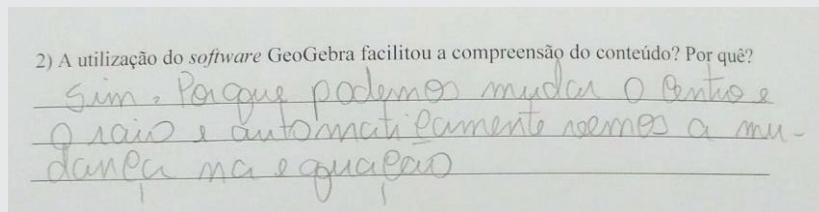 2) A utilização do software GeoGebra facilitou a compreensão do conteúdo? Por quê?
Sim, Porque podemos mudar o Centro e
o raio e automaticamente vemos a mu-
dança na equação